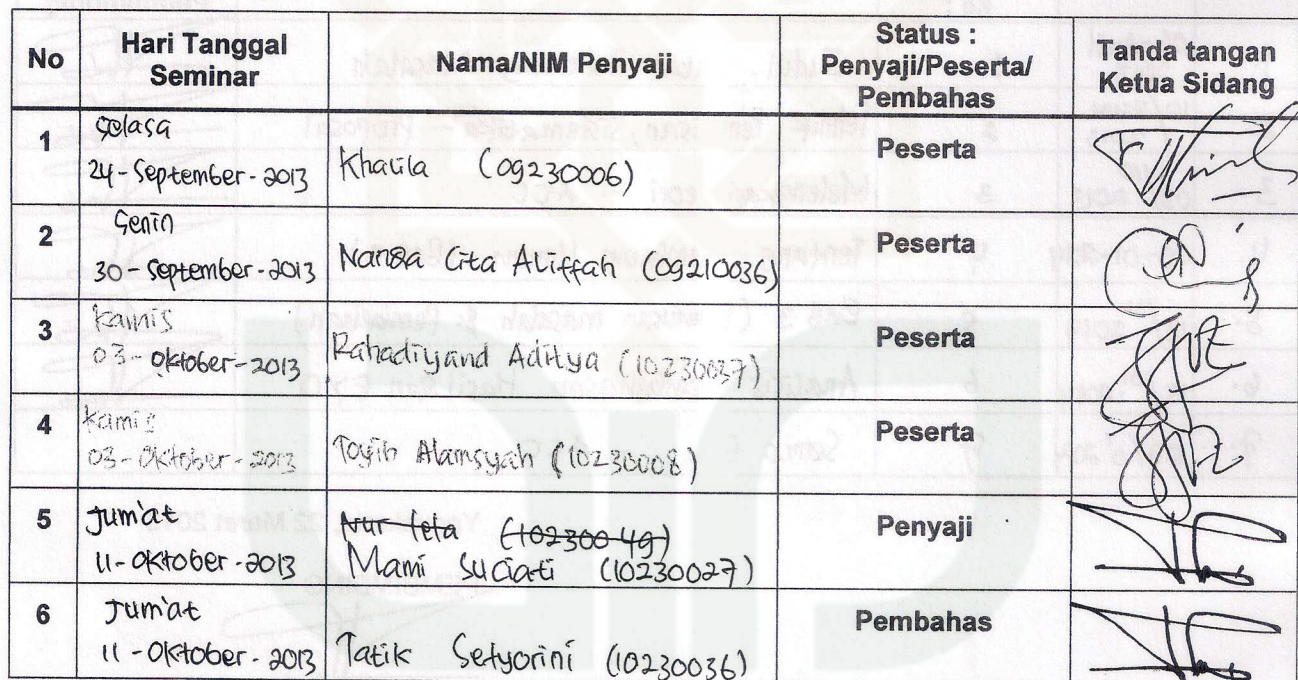 No
Hari Tanggal
Seminar
Nama/NIM Penyaji
Status :
Penyaji/Peserta/
Pembahas
Tanda tangan
Ketua Sidang
1
Selasa
24-September-2013
Khalila (09230006)
Peserta
2
Senin
30-September-2013
Nanda Cita Aliffah (09210036)
Peserta
3
Kamis
03-Oktober-2013
Rahadiyand Aditya (10230037)
Peserta
4
Kamis
03-Oktober-2013
Toyib Alamsyah (10230008)
Peserta
5
Jum'at
11-Oktober-2013
Nur lela (10230049)
Mami Suciati (10230027)
Penyaji
6
Jum'at
11-Oktober-2013
Tatik Setyorini (10230036)
Pembahas